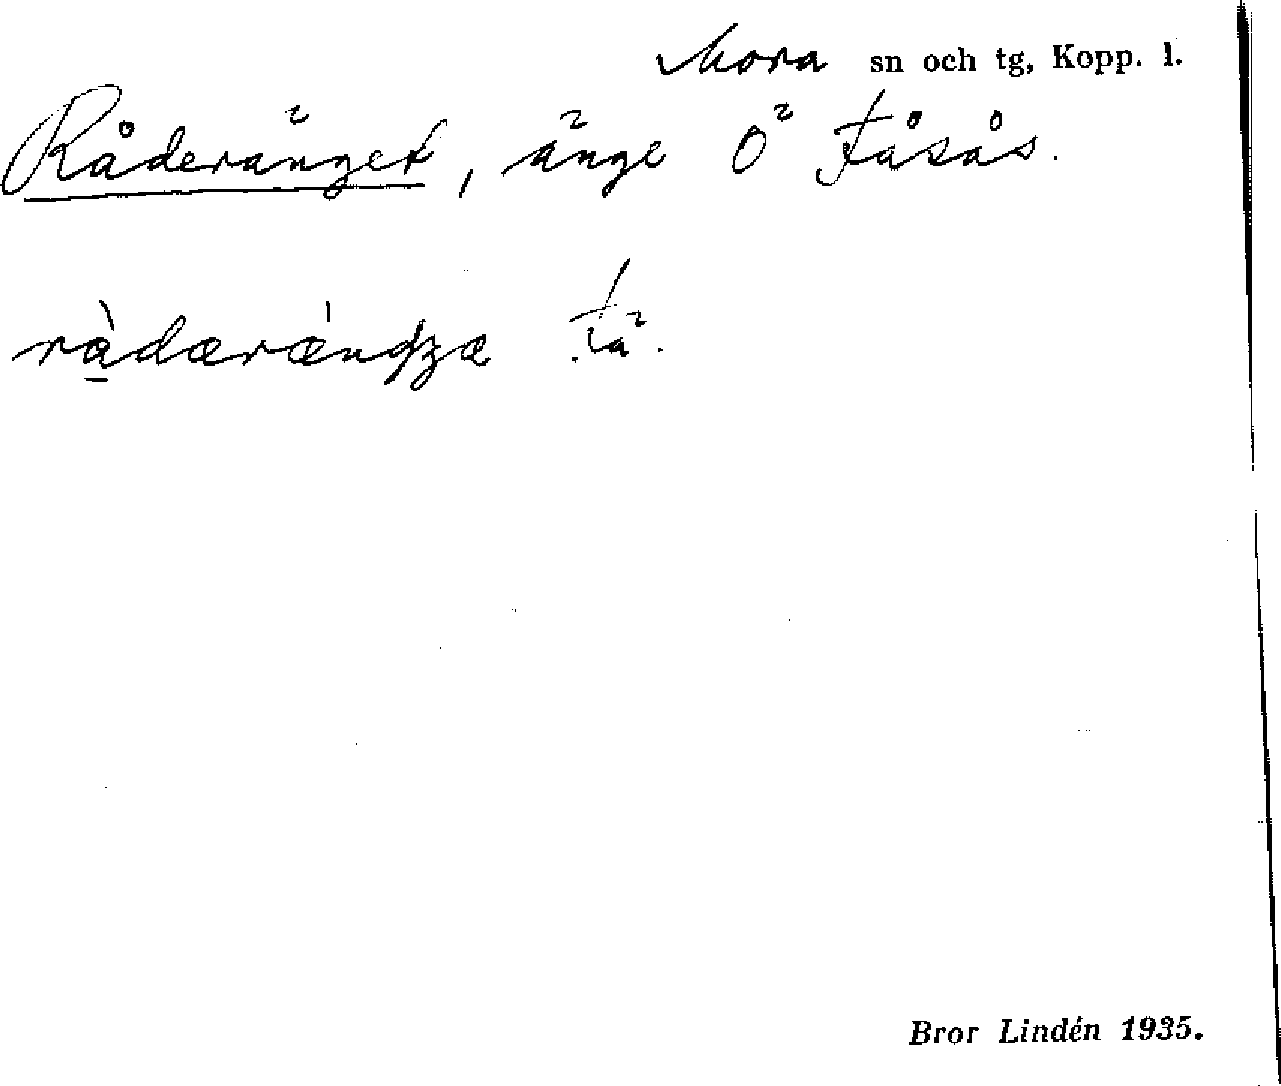 Mora sn och tg, Kopp. l.
Råderänget, änge Ö Fåsås.
ràdærǽndzæ
Bror Lindén 1935.